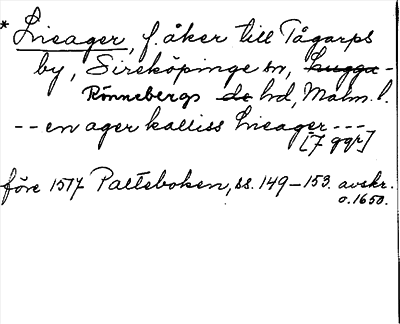 * Lieager, f. åker till Tågarps
by, Sireköpinge sn, Lugga-
Rönnebergs de hd, Malm. l.
-- en ager kalliss Lieager ---
[7 ggr]
före 1517 Palteboken, ss. 149-153. avskr.
o. 1650.